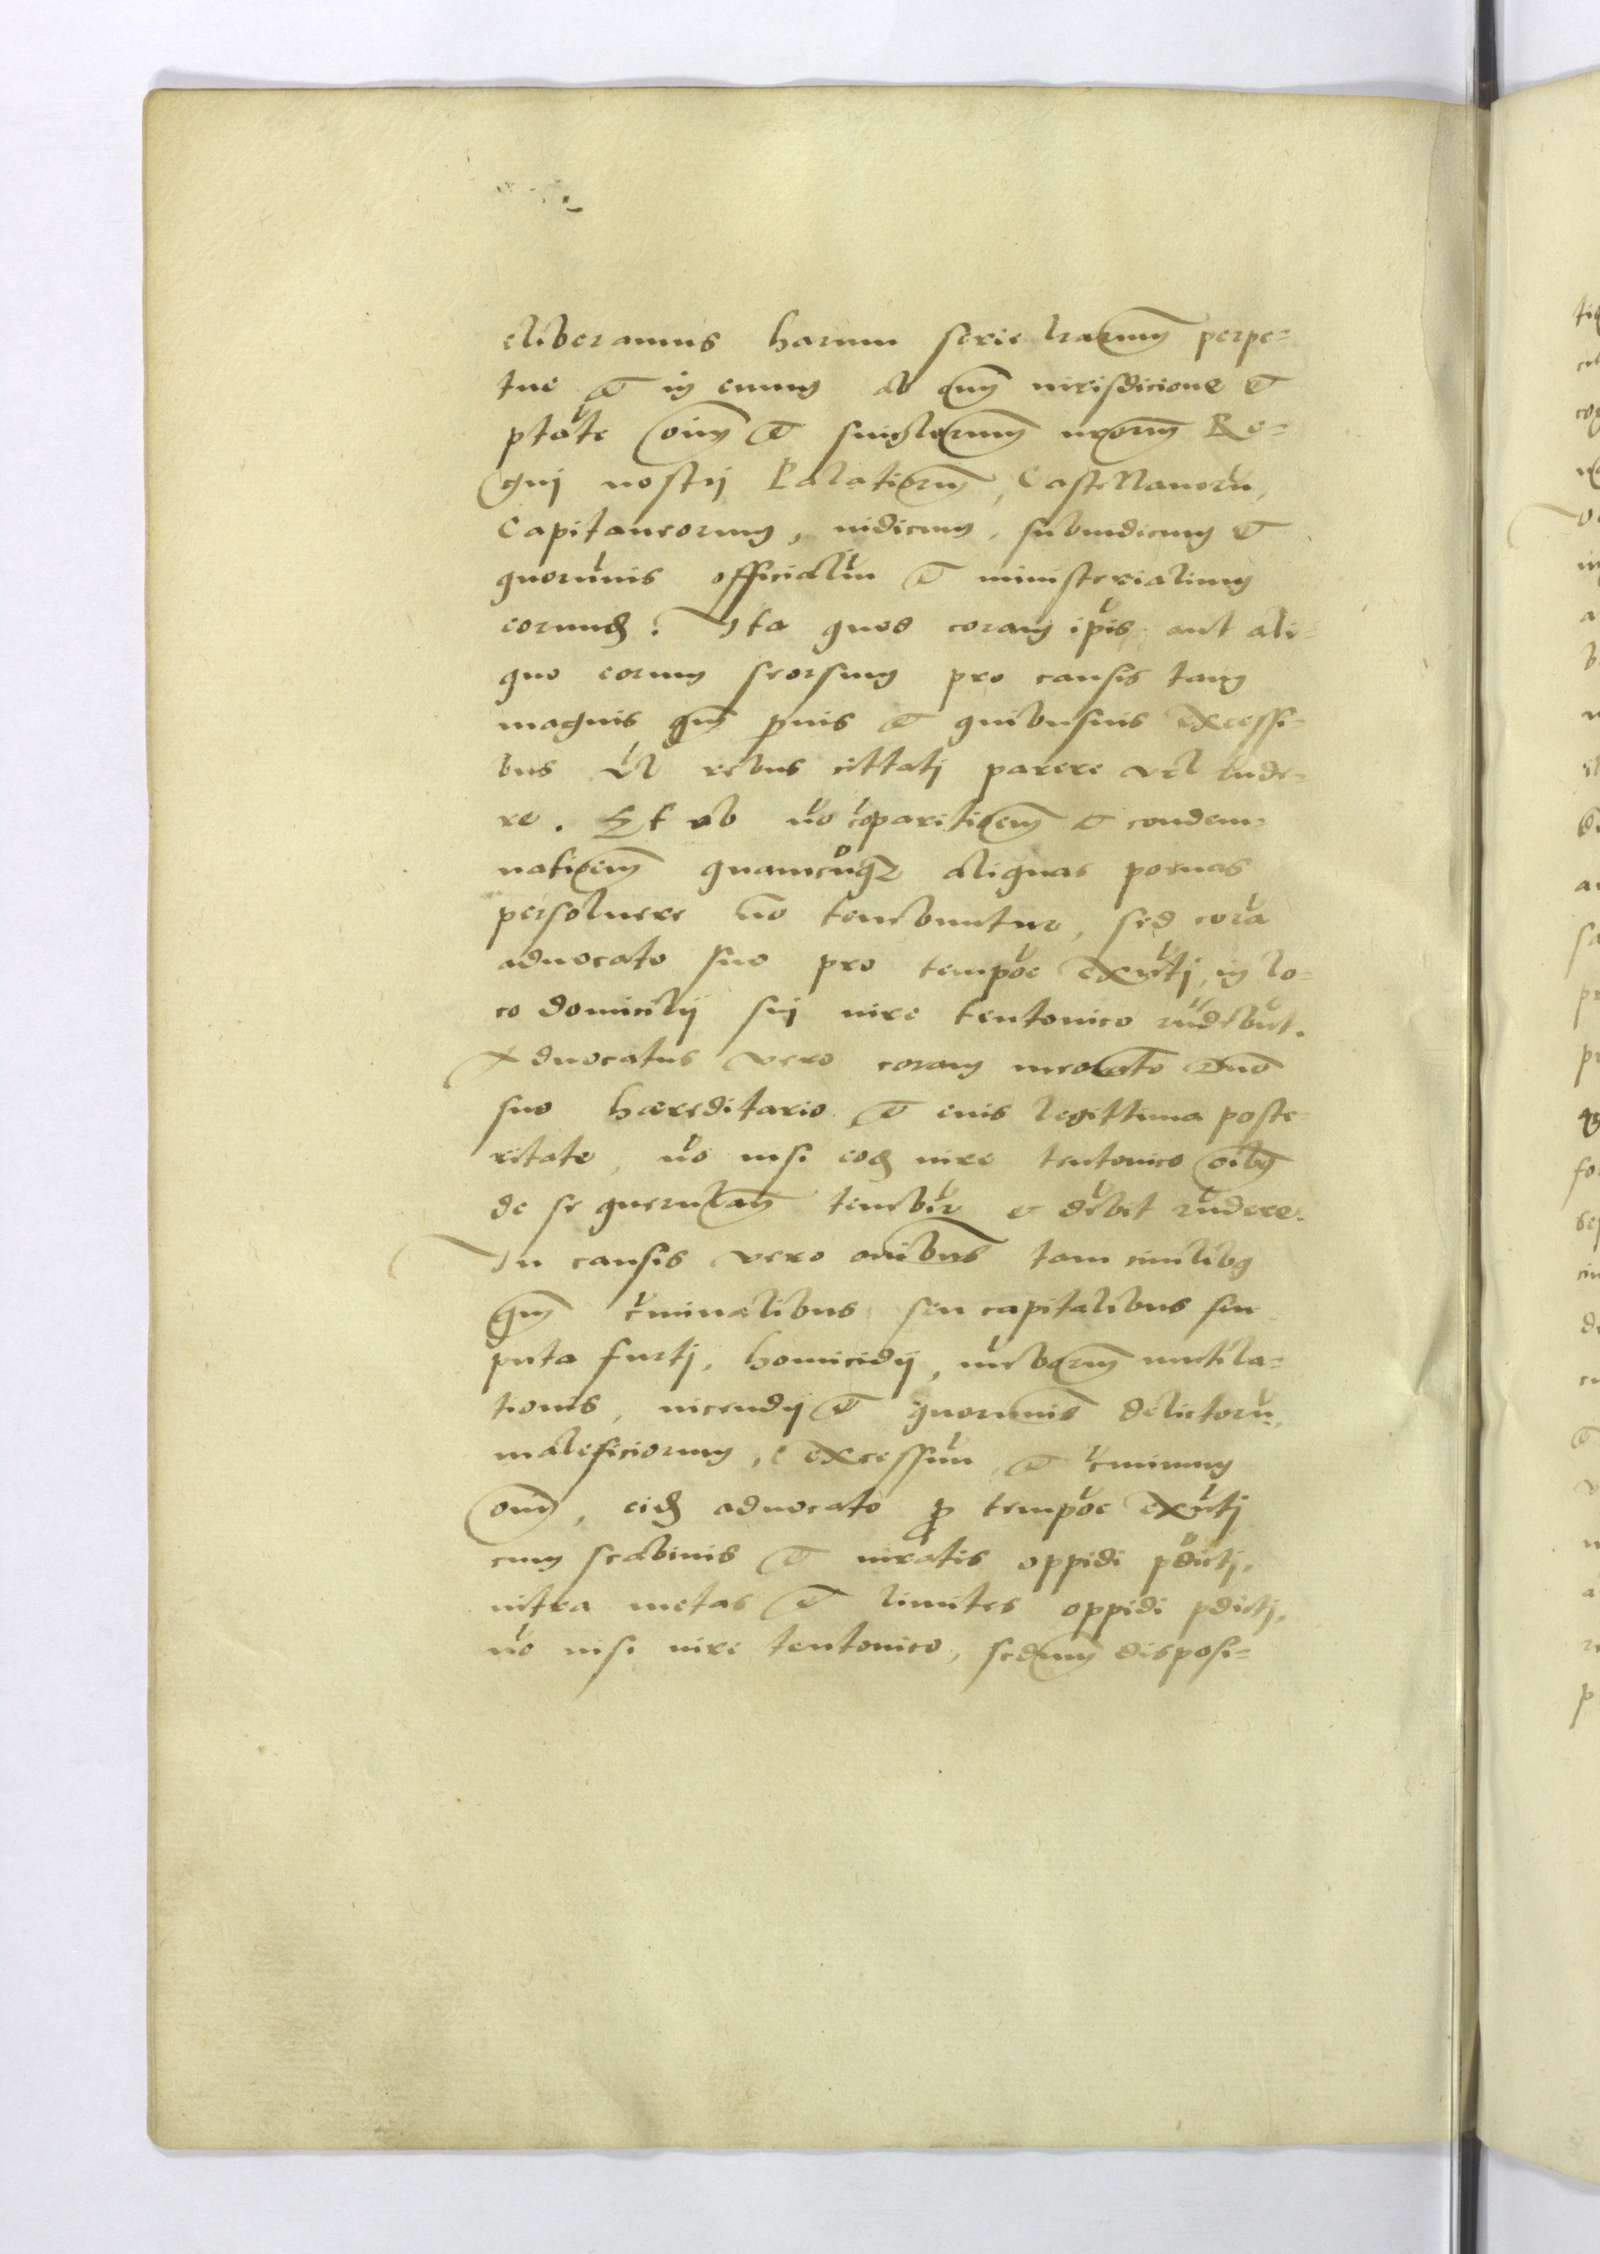 eliberamus harum serie lrarum perpe-
tue et in euum ab omni iurisdicione et
ptate oim et singlorum nrorum Re-
gni nostri Palatinorum, Castellanoru,
Capitaneorum, iudicum, subiudicum et
quorumuis officialiu et ministerialium
eorund. Ita quod coram ipis aut ali-
quo eorum seorsum pro causis tam
magnis qm paruis et quibusuis excessi-
bus vl rebus cittati parere vel rnde-
re. Et ob no coparitioem et condem-
natioem quamcuq3 aliquas poenas
persoluere no tenebuntur, sed cora
aduocato suo pro tempoe exnti, in lo-
co domicilij sui iure teutonico rndebut.
Aduocatus vero coram meorato Dno
suo haereditario et eius legittima poste-
ritate, no nisi eod iure teutonico oibus
de se querulan tenebir et debet rndere.
In causis vero omibus tam ciuilibus
qm criminalibus seu capitalibus seu
puta furti, homicidij, mebrorum mutila-
tionis, incendij et quorumuis delictoru,
maleficiorum, excessuu, et criminum
omm, eid aduocato pro tempoe exnti
cum scabinis et iuratis oppidi pdicti,
intra metas et limites oppidi pdicti,
no nisi iure teutonico, secdum disposi-